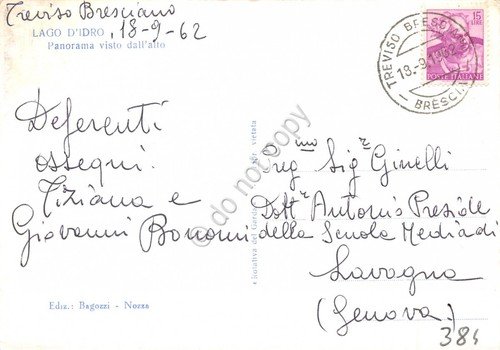 Treviso Bresciano
18-9-62
LAGO D'IDRO
Panorama visto dall'alto
Deferenti
ossequi.
Tiziana e
Giovanni Bonomi
Ediz.: Bagozzi - Nozza
vietata
15
POSTE ITALIANE
TREVISO BRESCIANO
18.-9.1962
BRESCIA
Preg.mo Sig.re Ginelli
Dott.re Antonio Preside
della Scuola Media di
Lavagna
(Genova)
384
© do not copy